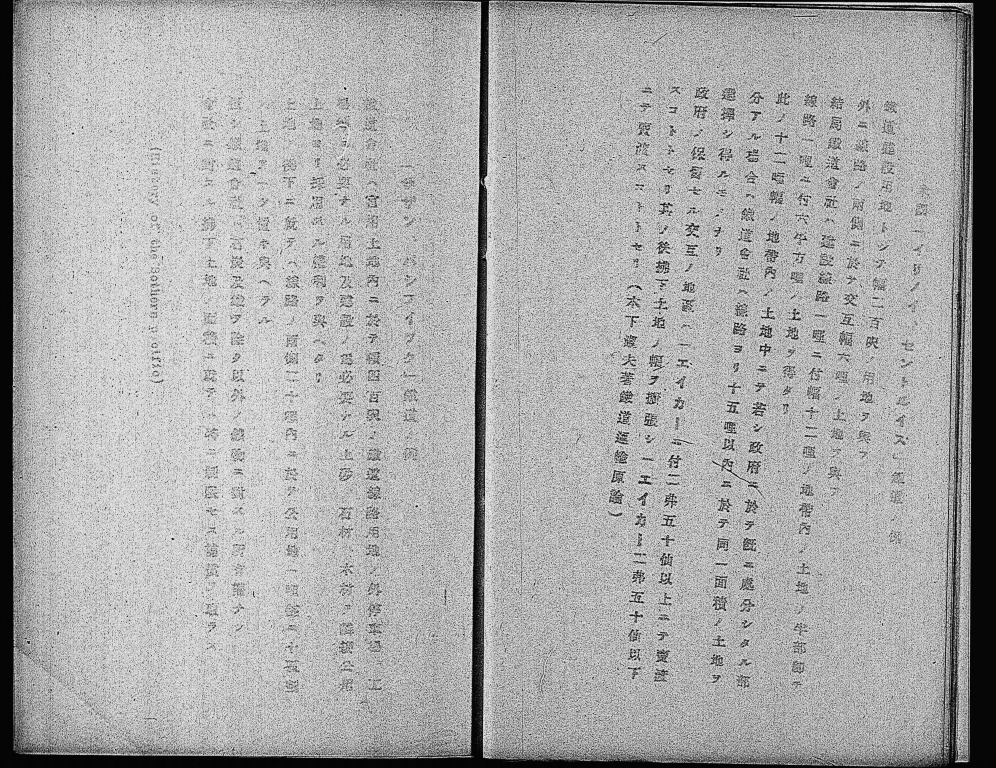 米國「イリノイ、セントルイス」鐵道ノ例
鐵道建設用地トシテ幅二百呎ノ用地ヲ與フ
外ニ線路ノ兩側ニ於テ交互幅六哩ノ土地ヲ與フ
結局鐵道會社ハ建設線路一哩ニ付幅十二哩ノ地帶內ノ土地ノ半部即チ
線路一哩ニ付六平方哩ノ土地ヲ得タリ
此ノ十二哩幅ノ地帶內ノ土地中ニテ若シ政府ニ於テ既ニ處分シタル部
分アル場合ハ鐵道會社ハ線路ヨリ十五哩以內ニ於テ同一面積ノ土地ヲ
選擇シ得ルモノナリ
政府ノ保留セル交互ノ地區ハ一エイカーニ付二弗五十仙以上ニテ賣渡
スコトトセリ其ノ後拂下土地ノ幅ヲ擴張シ一エイカー二弗五十仙以下
ニテ賣渡スコトトセリ（木下達夫著鐵道運輸原論）
「サザン、パシフイツク」鐵道ノ例
鐵道會社ハ官有土地內ニ於テ幅四百呎ノ鐵道線路用地ノ外停車場、工
場等ニ必要ナル用地及建設ノ爲必要ナル土砂、石材、木材ヲ隣接公有
土地ヨリ採用スル權利ヲ與ヘタリ
土地ノ拂下ニ就テハ線路ノ兩側二十哩內ニ於テ公用地一哩每ニ十區
土地ヲ
鐵道會社ハ石炭及鐵ヲ除ク以外ノ鑛物ニ對スル所有權ナシ
會社ニ對スル拂下土地ノ面積ニ就テハ
(History of the Southern Pacific)